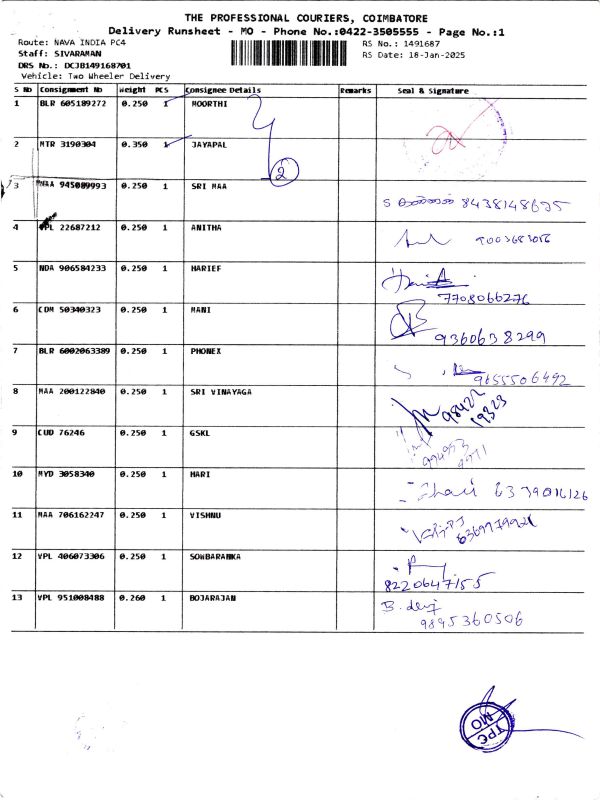 THE PROFESSIONAL COURIERS, COIMBATORE
Delivery Runsheet - MO - Phone No.:0422-3505555 - Page No.:1
Route: NAVA INDIA PC4 RS No.: 1491687
Staff: SIVARAMAN RS Date: 18-Jan-2025
DRS No.: DCJB149168701
Vehicle: Two Wheeler Delivery
S No Consignment No Weight PCS Consignee Details Remarks Seal & Signature
1 BLR 605189272 0.250 1 MOORTHI
2 MTR 3190304 0.350 1 JAYAPAL
2
3 MAA 945089993 0.250 1 SRI MAA
8438148625
4 VPL 22687212 0.250 1 ANITHA
5 NDA 906584233 0.250 1 HARIEF
7708066276
6 COM 50340323 0.250 1 MANI
9360638299
7 BLR 6002063389 0.250 1 PHONEX
9655506492
8 MAA 200122840 0.250 1 SRI VINAYAGA
98422
19323
9 CUD 76246 0.250 1 GSKL
10 MYD 3058340 0.250 1 HARI
6379016126
11 MAA 706162247 0.250 1 VISHNU
12 VPL 406073306 0.250 1 SOWBARANKA
8220647155
13 VPL 951008488 0.260 1 BOJARAJAN
B. devi
9895360506
TPC
MO